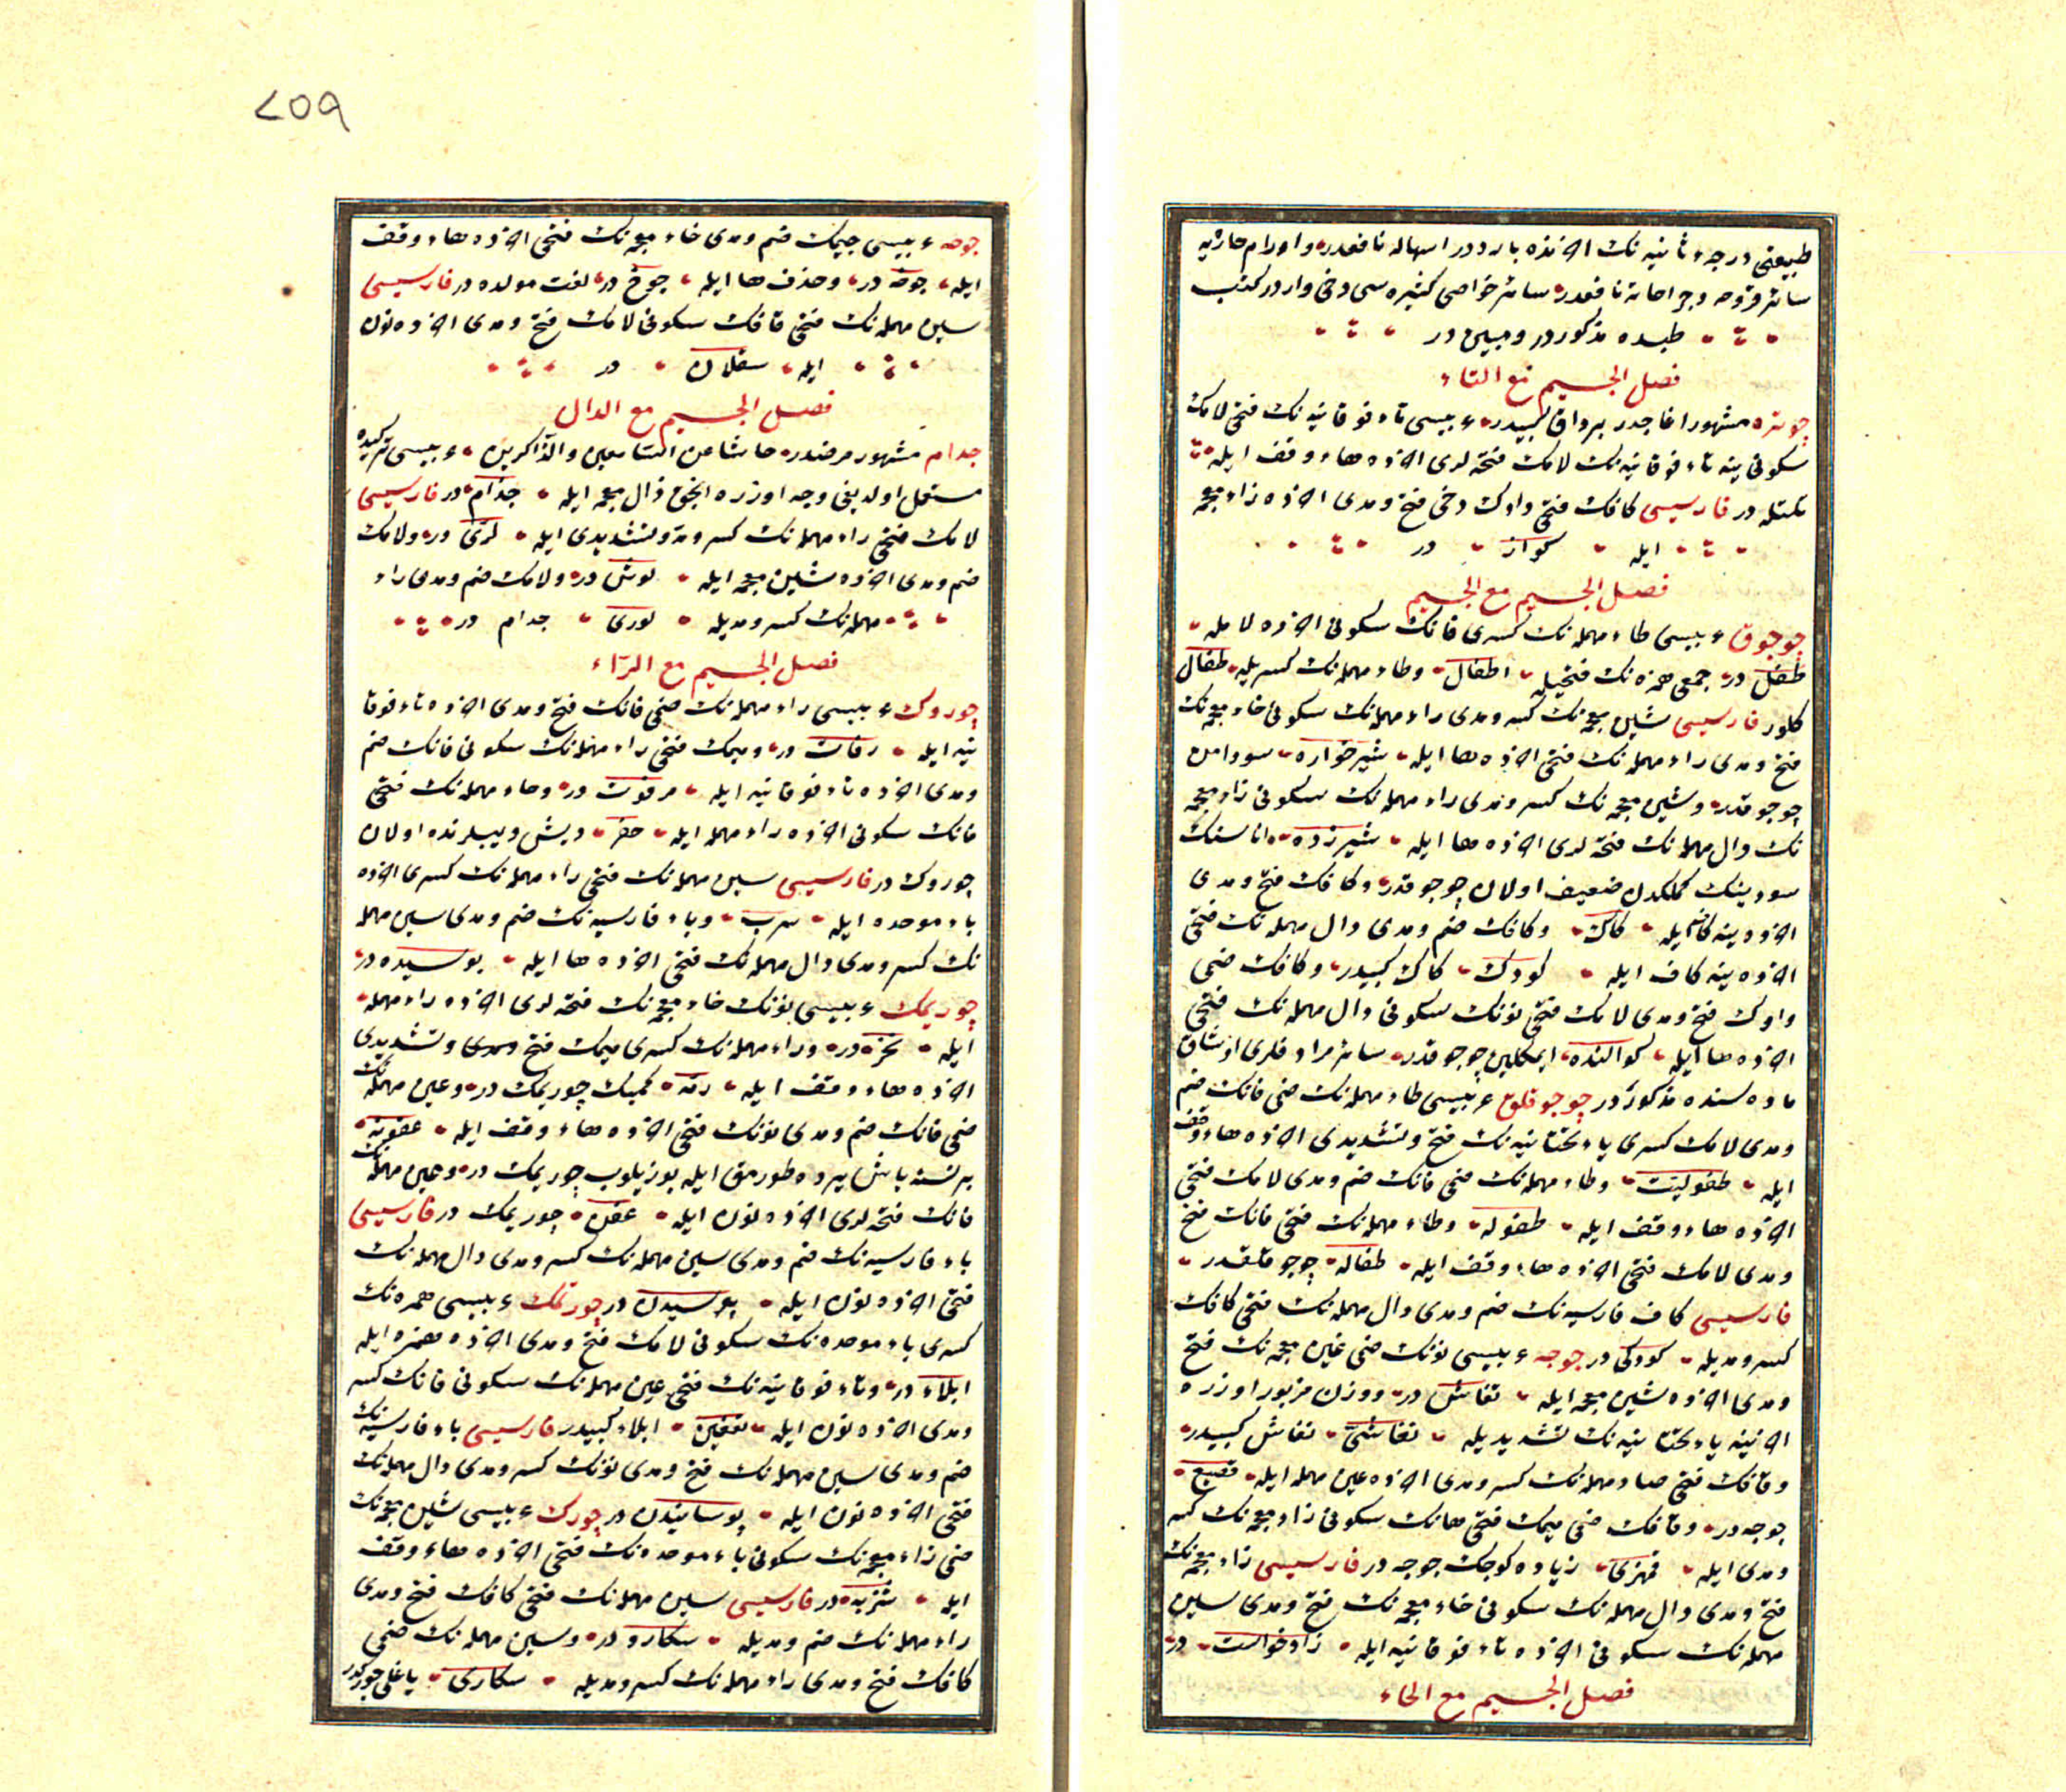 طبيعتى درجهٔ ثانيه نك اخرنده بارددر اسهاله نافعدر و اورام حاره يه
سائر قروحه وجراحاته نافعدر سائر خواصى كثيره سى دخى واردر كتب
طبده مذكوردر ومبيندر
فصل الجيم مع التاء
چوتره مشهور اغاجدر برداق كبيدر عربيسى تاء فوقانيه نك فتحى لامك
سكونى ينه تاء فوقانيه نك لامك فتحه لرى اخرده هاء وقف ايله
تلتله در فارسيسى كافك فتحى واوك دخى فتح ومدى اخرده زاء معجمه
ايله كواز در
فصل الجيم مع الجيم
چوجوق عربيسى طاء مهمله نك كسرى فانك سكونى اخرده لامله
طفل در جمعى همزه نك فتحيله اطفال وطاء مهمله نك كسريله طفال
كلور فارسيسى شين معجمه نك كسر ومدى راء مهمله نك سكونى خاء معجمه نك
فتح ومدى راء مهمله نك فتحى اخرده ها ايله شيرخواره سود امن
چوجوقدر وشين معجمه نك كسر ومدى راء مهمله نك سكونى زاء معجمه
نك دال مهمله نك فتحه لرى اخرده ها ايله شيرزده اناسنك
سودينك كملكدن ضعيف اولان چوجوقدر وكافك فتح ومدى
اخرده ينه كاف ايله كاك وكافك ضم ومدى دال مهمله نك فتحى
اخرده ينه كاف ايله كودك كاك كبيدر وكافك ضمى
واوك فتح ومدى لامك فتحى نونك سكونى دال مهمله نك فتحى
اخرده ها ايله كوالنده ايمكلين چوجوقدر سائر مرادفلرى اوشاق
ماده سنده مذكوردر چوجوقلق عربيسى طاء مهمله نك ضمى فانك ضم
ومدى لامك كسرى ياء تحتانيه نك فتح وتشديدى اخرده هاء وقف
ايله طفوليت وطاء مهمله نك ضمى فانك ضم ومدى لامك فتحى
اخرده هاء وقف ايله طفوله وطاء مهمله نك فتحى فانك فتح
ومدى لامك فتحى اخرده هاء وقف ايله طفاله چوجوقلقدر
فارسيسى كاف فارسيه نك ضم ومدى دال مهمله نك فتحى كافك
كسر ومديله كودكى در جوجه عربيسى نونك ضمى غين معجمه نك فتح
ومدى اخرده شين معجمه ايله نغاش در ووزن مزبور اوزره
اخرينه ياء تحتانيه نك تشديديله نغاشى نغاش كبيدر
وقافك فتحى صاد مهمله نك كسر ومدى اخرده عين مهمله ايله قصيع
جوجه در وقافك ضمى ميمك فتحى هانك سكونى زاء معجمه نك كسر
ومدى ايله قمهزى زياده كوجك جوجه در فارسيسى زاء معجمه نك
فتح ومدى دال مهمله نك سكونى خاء معجمه نك فتح ومدى سين
مهمله نك سكونى اخرده تاء فوقانيه ايله زادخواست در
فصل الجيم مع الخاء
٢٥٩
چوخه عربيسى جيمك ضم ومدى خاء معجمه نك فتحى اخرده هاء وقف
ايله جوخه در وحذف ها ايله جوخ در لغت مولده در فارسيسى
سين مهمله نك فتحى قافك سكونى لامك فتح ومدى اخرده نون
ايله سقلان در
فصل الجيم مع الدال
جدام مشهور مرضدر حاشا عن السامعين والذاكرين عربيسى تركيده
مستعمل اولديغى وجه اوزره انجق ذال معجمه ايله جذام در فارسيسى
لامك فتحى راء مهمله نك كسر ومد وتشديدى ايله لرى در ولامك
ضم ومدى اخرده شين معجمه ايله لوش در ولامك ضم ومدى راء
مهمله نك كسر ومديله لورى جدام در
فصل الجيم مع الراء
چوروك عربيسى راء مهمله نك ضمى فانك فتح ومدى اخرده تاء فوقا
نيه ايله رفات در وميمك فتحى راء مهمله نك سكونى فانك ضم
ومدى اخرده تاء فوقانيه ايله مرفوت در وحاء مهمله نك فتحى
فانك سكونى اخرده راء مهمله ايله حفر ديش ديبلرنده اولان
چوروك در فارسيسى سين مهمله نك فتحى راء مهمله نك كسرى اخرده
باء موحده ايله سرب وباء فارسيه نك ضم ومدى سين مهمله
نك كسر ومدى دال مهمله نك فتحى اخرده ها ايله پوسيده در
چوريمك عربيسى نونك خاء معجمه نك فتحه لرى اخرده راء مهمله
ايله نخر در وراء مهمله نك كسرى ميمك فتح ومدى وتشديدى
اخرده هاء وقف ايله رمه كميك چوريمك در وعين مهمله نك
ضمى فانك ضم ومدى نونك فتحى اخرده هاء وقف ايله عفونه
برنسنه باش يرده طورمق ايله بوزيلوب چوريمك در وعين مهمله نك
فانك فتحه لرى اخرده نون ايله عفن چوريمك در فارسيسى
باء فارسيه نك ضم ومدى سين مهمله نك كسر ومدى دال مهمله نك
فتحى اخرده نون ايله پوسيدن در چورتمك عربيسى همزه نك
كسرى باء موحده نك سكونى لامك فتح ومدى اخرده همزه ايله
ابلاء در وتاء فوقانيه نك فتحى عين مهمله نك سكونى فانك كسر
ومدى اخرده نون ايله تعفين ابلاء كبيدر فارسيسى باء فارسيه نك
ضم ومدى سين مهمله نك فتح ومدى نونك كسر ومدى دال مهمله نك
فتحى اخرده نون ايله پوسانيدن در چورك عربيسى شين معجمه نك
ضمى زاء معجمه نك سكونى باء موحده نك فتحى اخرده هاء وقف
ايله شزبه در فارسيسى سين مهمله نك فتحى كافك فتح ومدى
راء مهمله نك ضم ومديله سكارو در وسين مهمله نك ضمى
كافك فتح ومدى راء مهمله نك كسر ومديله سكارى ياغلى چوركدر